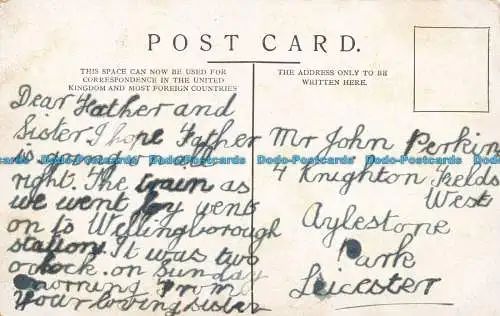 POST CARD.
THIS SPACE CAN NOW BE USED FOR
CORRESPONDENCE IN THE UNITED
KINGDOM AND MOST FOREIGN COUNTRIES
THE ADDRESS ONLY TO BE
WRITTEN HERE.
Dear Father and
Sister I hope Father
is going on all
right. The train as
we went by went
on to Wellingborough
station. It was two
o'clock on Sunday
morning From
your loving sister
Mr John Perkin
4 Knighton Fields
West
Aylestone
Park
Leicester
Dodo-Postcards Dodo-Postcards Dodo-Postcards Dodo-Postcards Dodo-Postcards